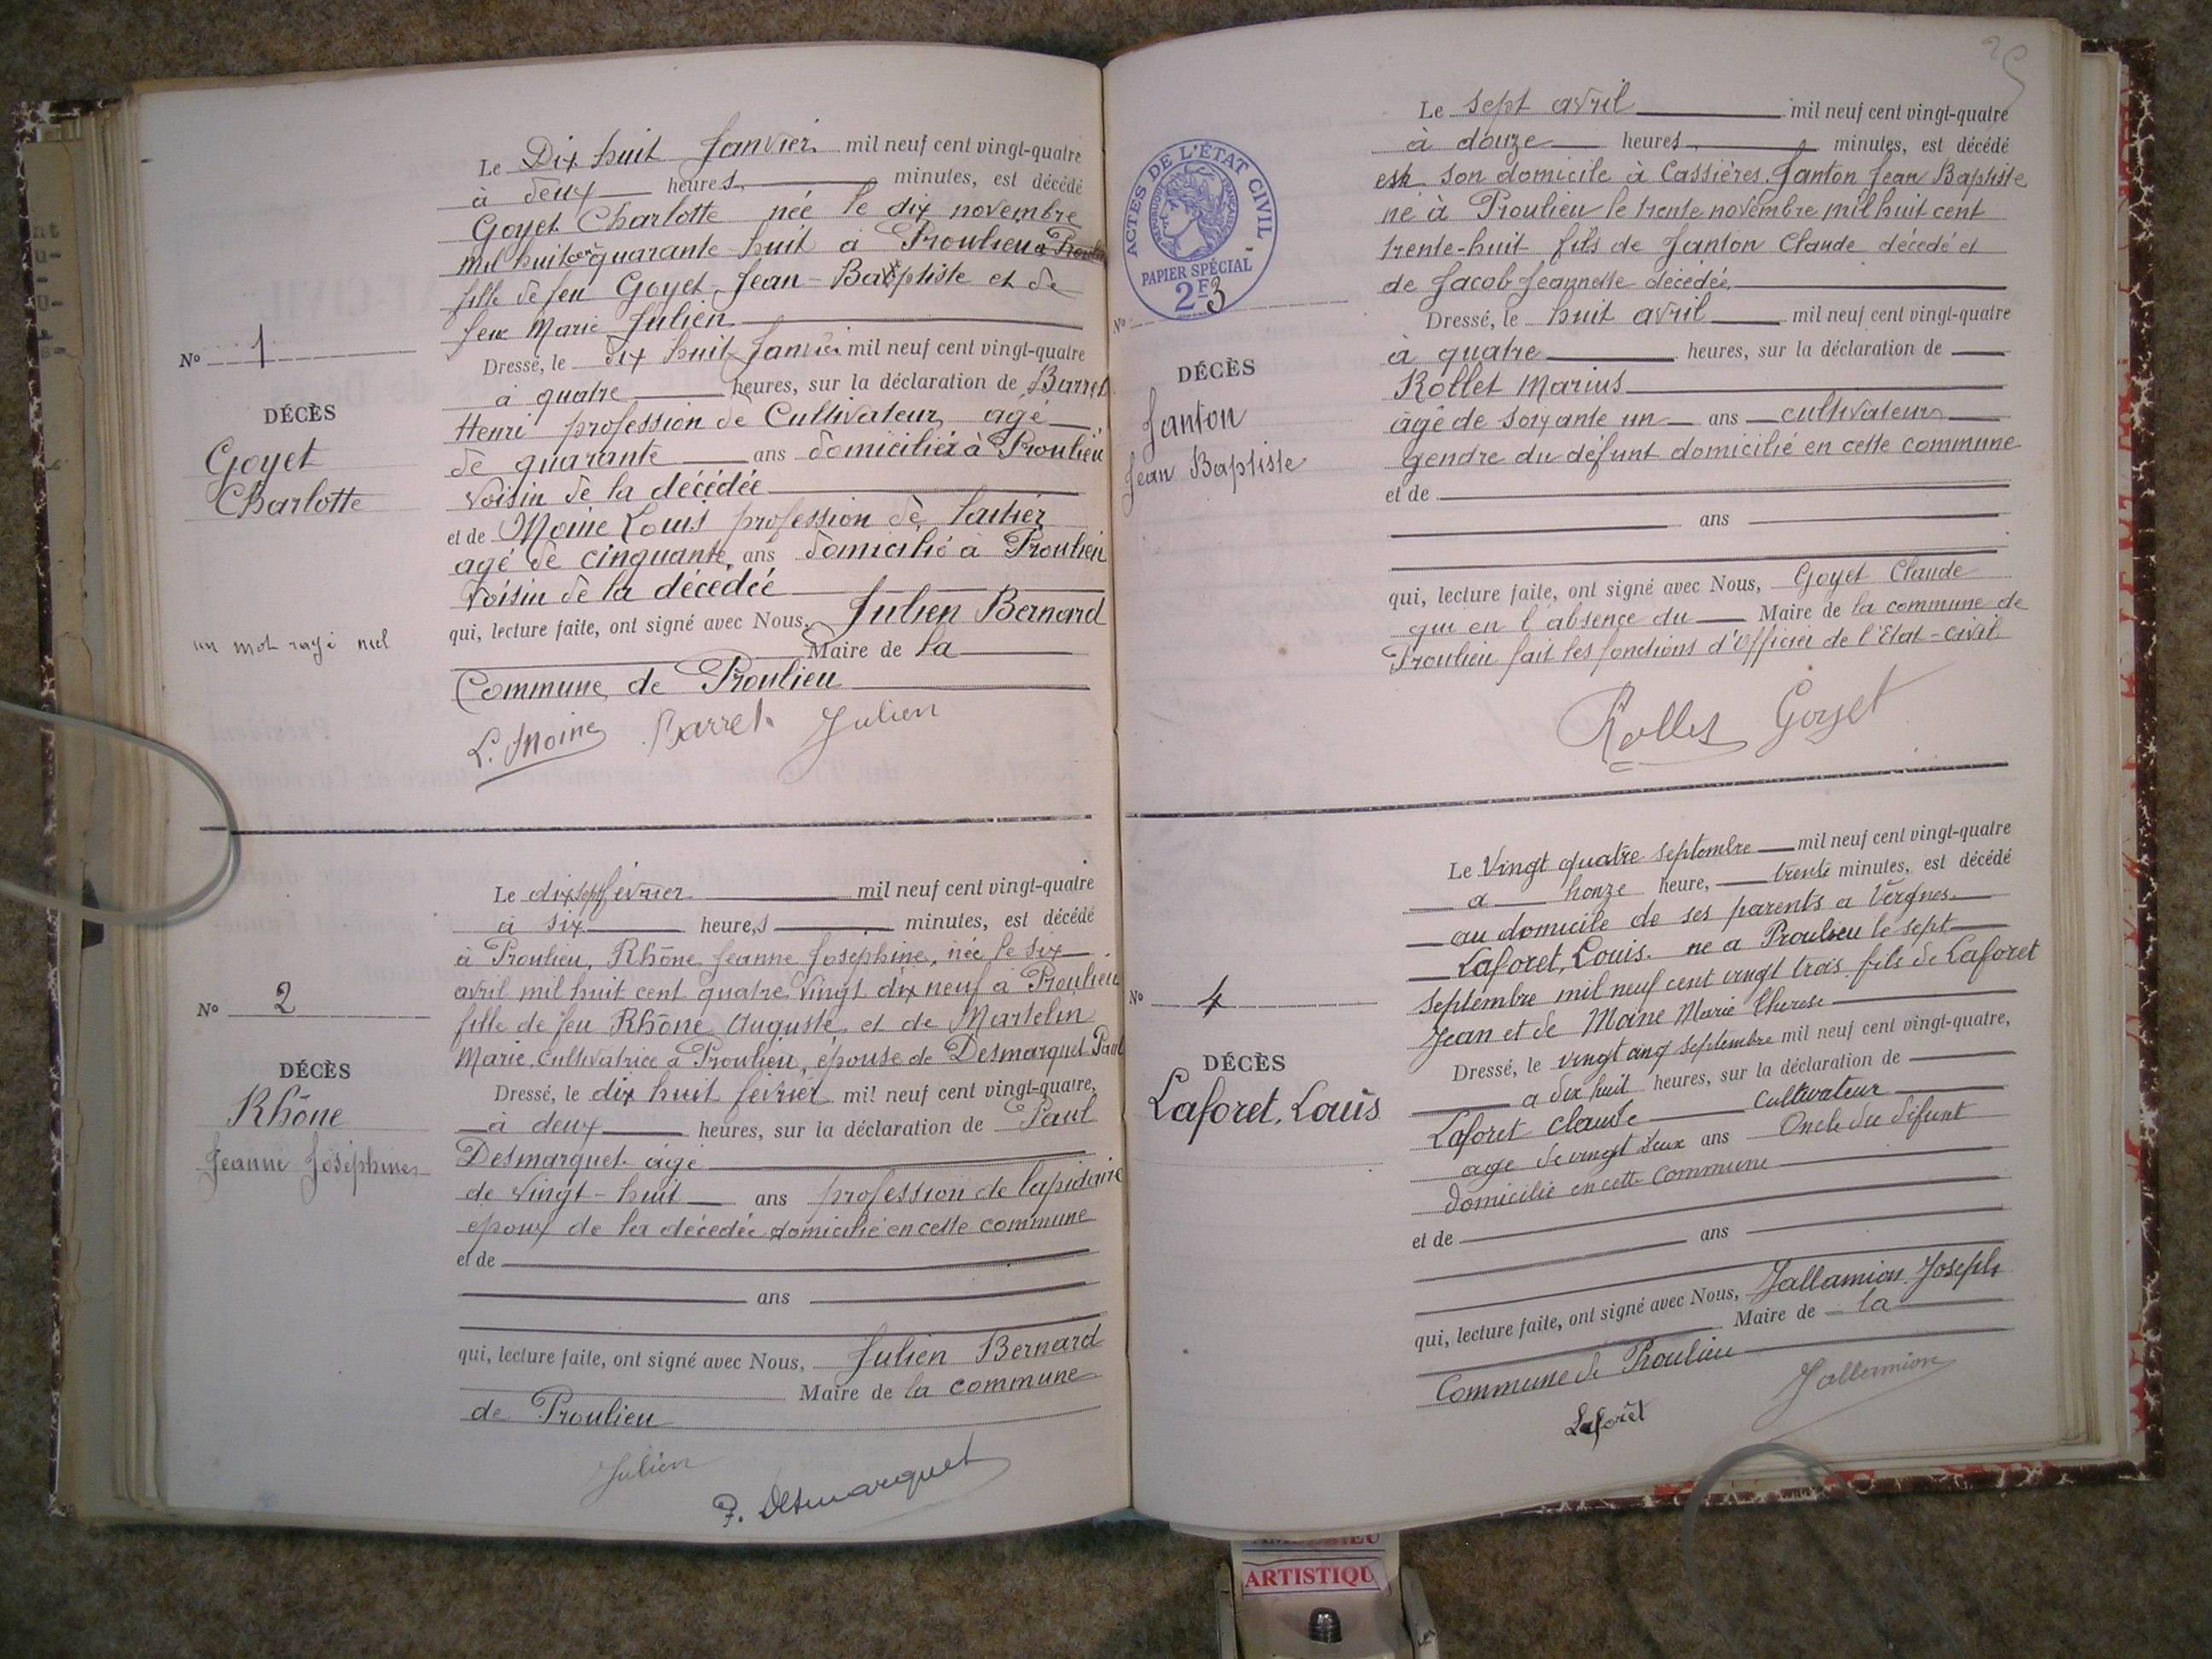 Le Dix huit Janvier mil neuf cent vingt-quatre
à deux heures, minutes, est décédé
Goyet Charlotte née le dix novembre
mil huit cent quarante-huit à Proulieu à
fille de feu Goyet Jean-Baptiste et de
feue Marie Julien
Dressé, le dix huit Janvier mil neuf cent vingt-quatre
à quatre heures, sur la déclaration de Barret
Henri profession de Cultivateur agé
de quarante ans domicilié à Proulieu
Voisin de la décédée
et de Moine Louis profession de laitier
agé de cinquante ans domicilié à Proulieu
Voisin de la décédée
qui, lecture faite, ont signé avec Nous, Julien Bernard
Maire de la
Commune de Proulieu
L. Moine Barret Julien
No 1
DÉCÈS
Goyet
Charlotte
un mot rayé nul
Le dix sept février mil neuf cent vingt-quatre
à six heures minutes, est décédé
à Proulieu, Rhône Jeanne Josephine, née le six
avril mil huit cent quatre vingt dix neuf à Proulieu
fille de feu Rhône Auguste et de Martelin
Marie, Cultivatrice à Proulieu, épouse de Desmarquet Paul
Dressé, le dix huit février mil neuf cent vingt-quatre,
à deux heures, sur la déclaration de Paul
Desmarquet agé
de vingt-huit ans profession de lapidaire
epoux de la décédée domicilié en cette commune
et de
ans
qui, lecture faite, ont signé avec Nous, Julien Bernard
Maire de la commune
de Proulieu
Julien
P. Desmarquet
No 2
DÉCÈS
Rhône
Jeanne Joséphine
25
Le sept avril mil neuf cent vingt-quatre
à douze heures minutes, est décédé
en son domicile à Cassières, Janton Jean Baptiste
né à Proulieu le trente novembre mil huit cent
trente-huit fils de Janton Claude décédé et
de Jacob Jeannette décédée,
Dressé, le huit avril mil neuf cent vingt-quatre
à quatre heures, sur la déclaration de
Rollet Marius
âgé de soixante un ans cultivateur
gendre du défunt domicilié en cette commune
et de
ans
qui, lecture faite, ont signé avec Nous, Goyet Claude
qui en l'absence du Maire de la commune de
Proulieu fait les fonctions d'Officier de l'Etat-civil
Rollet Goyet
ACTES DE L'ÉTAT CIVIL
RÉPUBLIQUE FRANÇAISE
PAPIER SPÉCIAL
2F
No 3
DÉCÈS
Janton
Jean Baptiste
Le Vingt quatre septembre mil neuf cent vingt-quatre
a honze heure, trente minutes, est décédé
au domicile de ses parents a Vergnes
Laforet, Louis. ne a Proulieu le sept
septembre mil neuf cent vingt trois fils de Laforet
Jean et de Moine Marie Therese
Dressé, le vingt cinq septembre mil neuf cent vingt-quatre,
a dix huit heures, sur la déclaration de
Laforet claude cultivateur
age de vingt deux ans Oncle du défunt
domicilié en cette commune
et de
ans
qui, lecture faite, ont signé avec Nous, Jallamion Joseph
Maire de la
Commune de Proulieu
Laforêt Jallamion
No 4
DÉCÈS
Laforet, Louis
ARTISTIQU